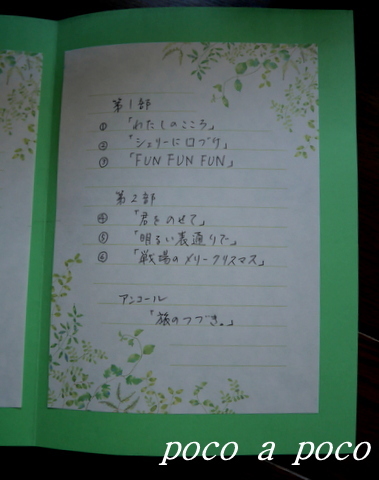 第1部
① 「わたしのこころ」
② 「シェリーに口づけ」
③ 「FUN FUN FUN」
第2部
④ 「君をのせて」
⑤ 「明るい表通りで」
⑥ 「戦場のメリークリスマス」
アンコール
「旅のつづき。」
poco a poco